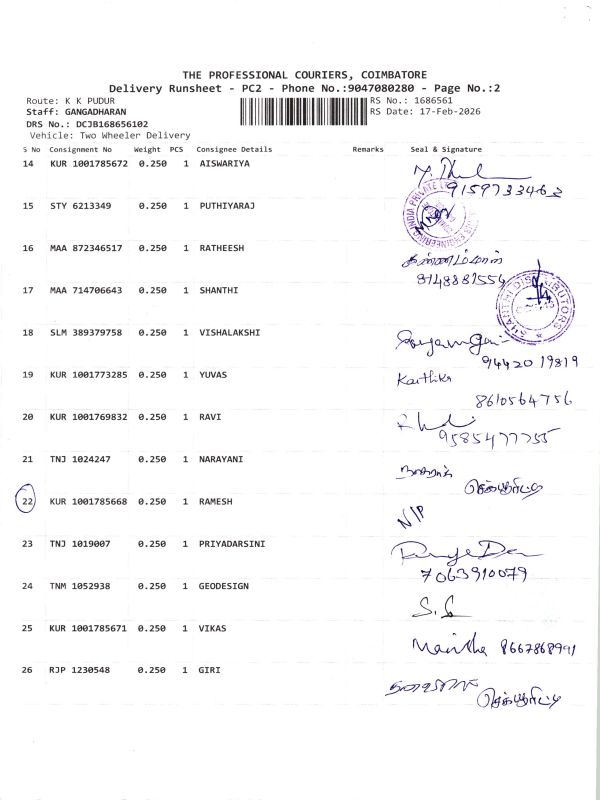 THE PROFESSIONAL COURIERS, COIMBATORE
Delivery Runsheet - PC2 - Phone No.:9047080280 - Page No.:2
Route: K K PUDUR RS No.: 1686561
Staff: GANGADHARAN RS Date: 17-Feb-2026
DRS No.: DCJB168656102
Vehicle: Two Wheeler Delivery
S No Consignment No Weight PCS Consignee Details Remarks Seal & Signature
14 KUR 1001785672 0.250 1 AISWARIYA
9159733463
15 STY 6213349 0.250 1 PUTHIYARAJ
16 MAA 872346517 0.250 1 RATHEESH
9148881554
17 MAA 714706643 0.250 1 SHANTHI
SHANTHI DISTRIBUTORS
18 SLM 389379758 0.250 1 VISHALAKSHI
94420 19819
19 KUR 1001773285 0.250 1 YUVAS Karthika
8610564756
20 KUR 1001769832 0.250 1 RAVI
9585477755
21 TNJ 1024247 0.250 1 NARAYANI
செக்யூரிட்டி
22 KUR 1001785668 0.250 1 RAMESH N/P
23 TNJ 1019007 0.250 1 PRIYADARSINI
7063910079
24 TNM 1052938 0.250 1 GEODESIGN
25 KUR 1001785671 0.250 1 VIKAS 8667868991
26 RJP 1230548 0.250 1 GIRI
செக்யூரிட்டி